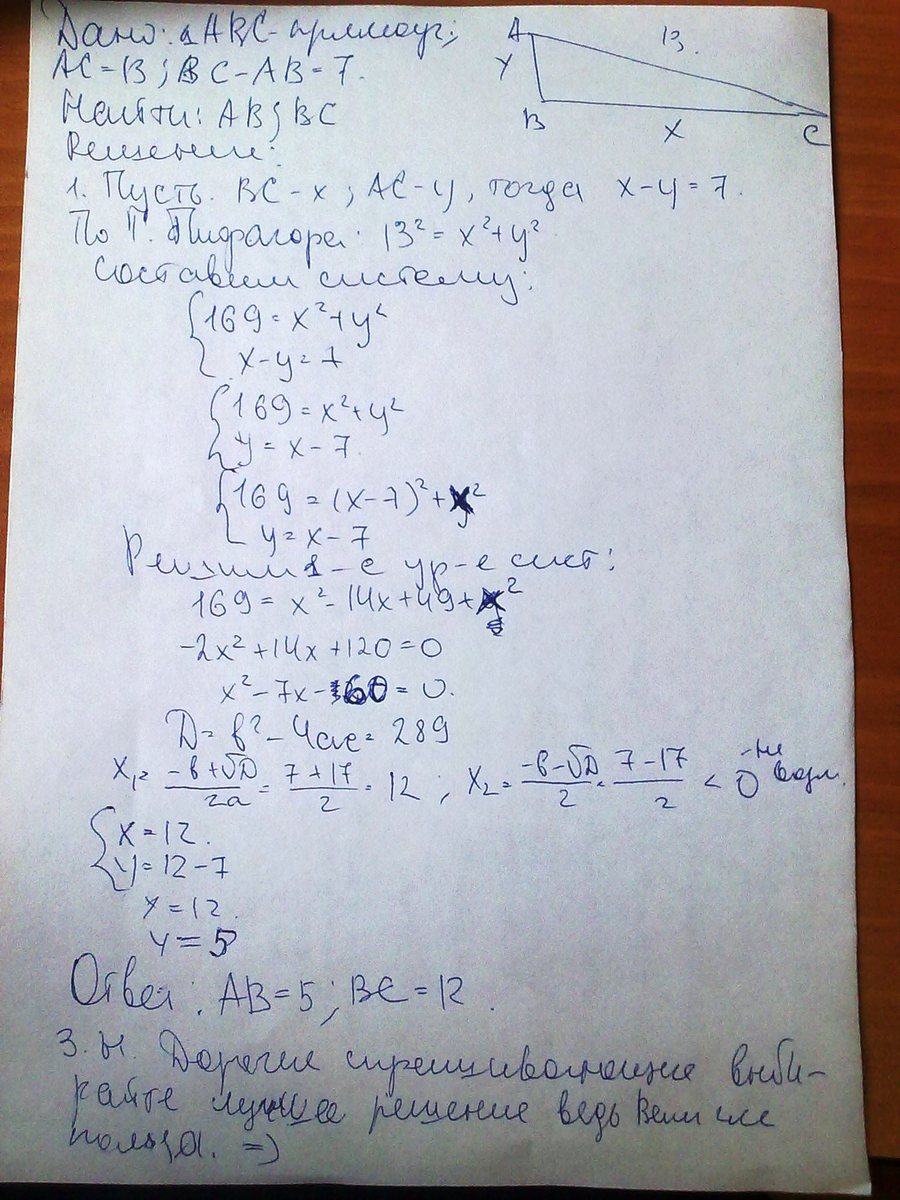 Дано: △ABC-прямоуг;
AC=13; BC-AB=7.
Найти: AB; BC
Решение:
A
13.
У
B
X
C
1. Пусть. BC-x; AC-y, тогда x-y=7.
По Т. Пифагора: 13²=x²+y²
Составим систему:
{169=x²+y²
x-y=7
{169=x²+y²
y=x-7
{169=(x-7)²+x²
y=x-7
Решим 1-е ур-е сист:
169=x²-14x+49+x²
-2x²+14x+120=0
x²-7x-60=0.
D=b²-4ac=289
x₁=(-b+√D)/2a=(7+17)/2=12; x₂=(-b-√D)/2=(7-17)/2<0 -не
{x=12.
y=12-7
x=12.
y=5
Ответ: AB=5; BC=12.
З.Ы. Дорогие спрашивающие выби-
райте лучшее решение ведь
польза. =)